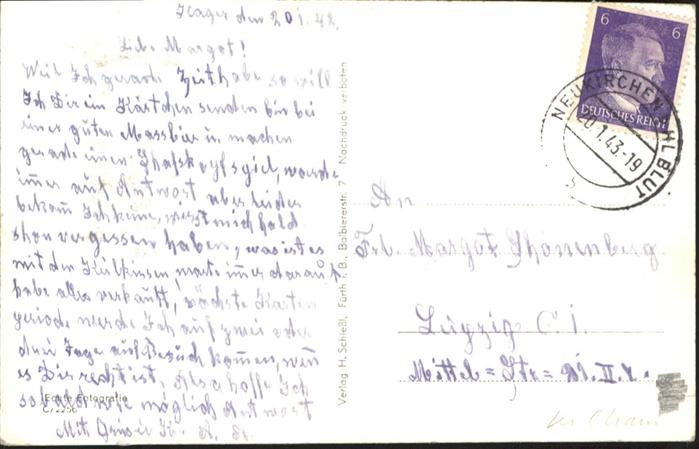 den 20.1.42
Liebe Margot!
Weil Ich gerade Zeit habe so will
Ich Dir ein Kärtchen senden bin bei
einer guten Massbier u. machen
gerade einen
immer auf Antwort aber leider
bekom Ich keine, wirst mich bald
schon vergessen haben, was ist es
mit den warte immer darauf
habe alles verkauft, nächste Karten
periode werde Ich auf zwei oder
drei Tage auf Besuch kommen, wenn
es Dir recht ist. Also hoffe Ich
so bald wie möglich Antwort
Mit Gruss
Echte Fotografie
C/2256
Verlag H. Schießl, Fürth i. B., Babiererstr. 7 Nachdruck verboten
6 6
DEUTSCHES REICH
NEUKIRCHEN HL BLUT
20.1.43-19
An
Frl. Margot Schönenberg
Leipzig C. 1.
Mittel = Str =